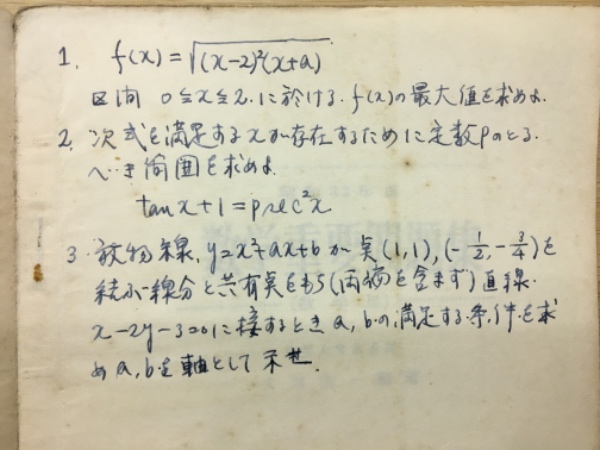 1. f(x) = √(x-2)²(x+a)
区间 0≦x≦2.に於ける. f(x)の最大値を求めよ.
2. 次式を満足するxが存在するために定数Pのとる.
べき範囲を求めよ.
tan x + 1 = p sec²x
3. 放物線, y=x²+ax+b が点(1,1), (-1/2, -3/4)を
結ぶ線分と共有点をもち(両端を含まず)直線.
x-2y-3=0に接するときa, bの満足する条件を求
めa, bを軸として示せ.